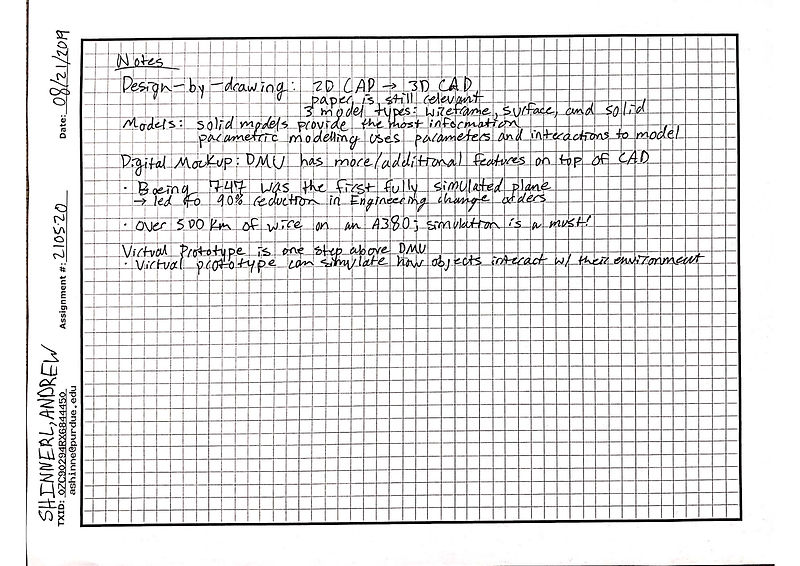 Notes
Design-by-drawing: 2D CAD → 3D CAD
paper is still relevant
3 model types: wireframe, surface, and solid
Models: solid models provide the most information
parametric modelling uses parameters and interactions to model
Digital Mockup: DMU has more/additional features on top of CAD
· Boeing 747 was the first fully simulated plane
→ led to 90% reduction in Engineering change orders
· Over 500 km of wire on an A380; simulation is a must!
Virtual Prototype is one step above DMU
· Virtual prototype can simulate how objects interact w/ their environment
Date: 08/21/2019
Assignment #: 2105-20
SHINNERL, ANDREW
TXID: 0ZC90294RX6844450
ashinne@purdue.edu